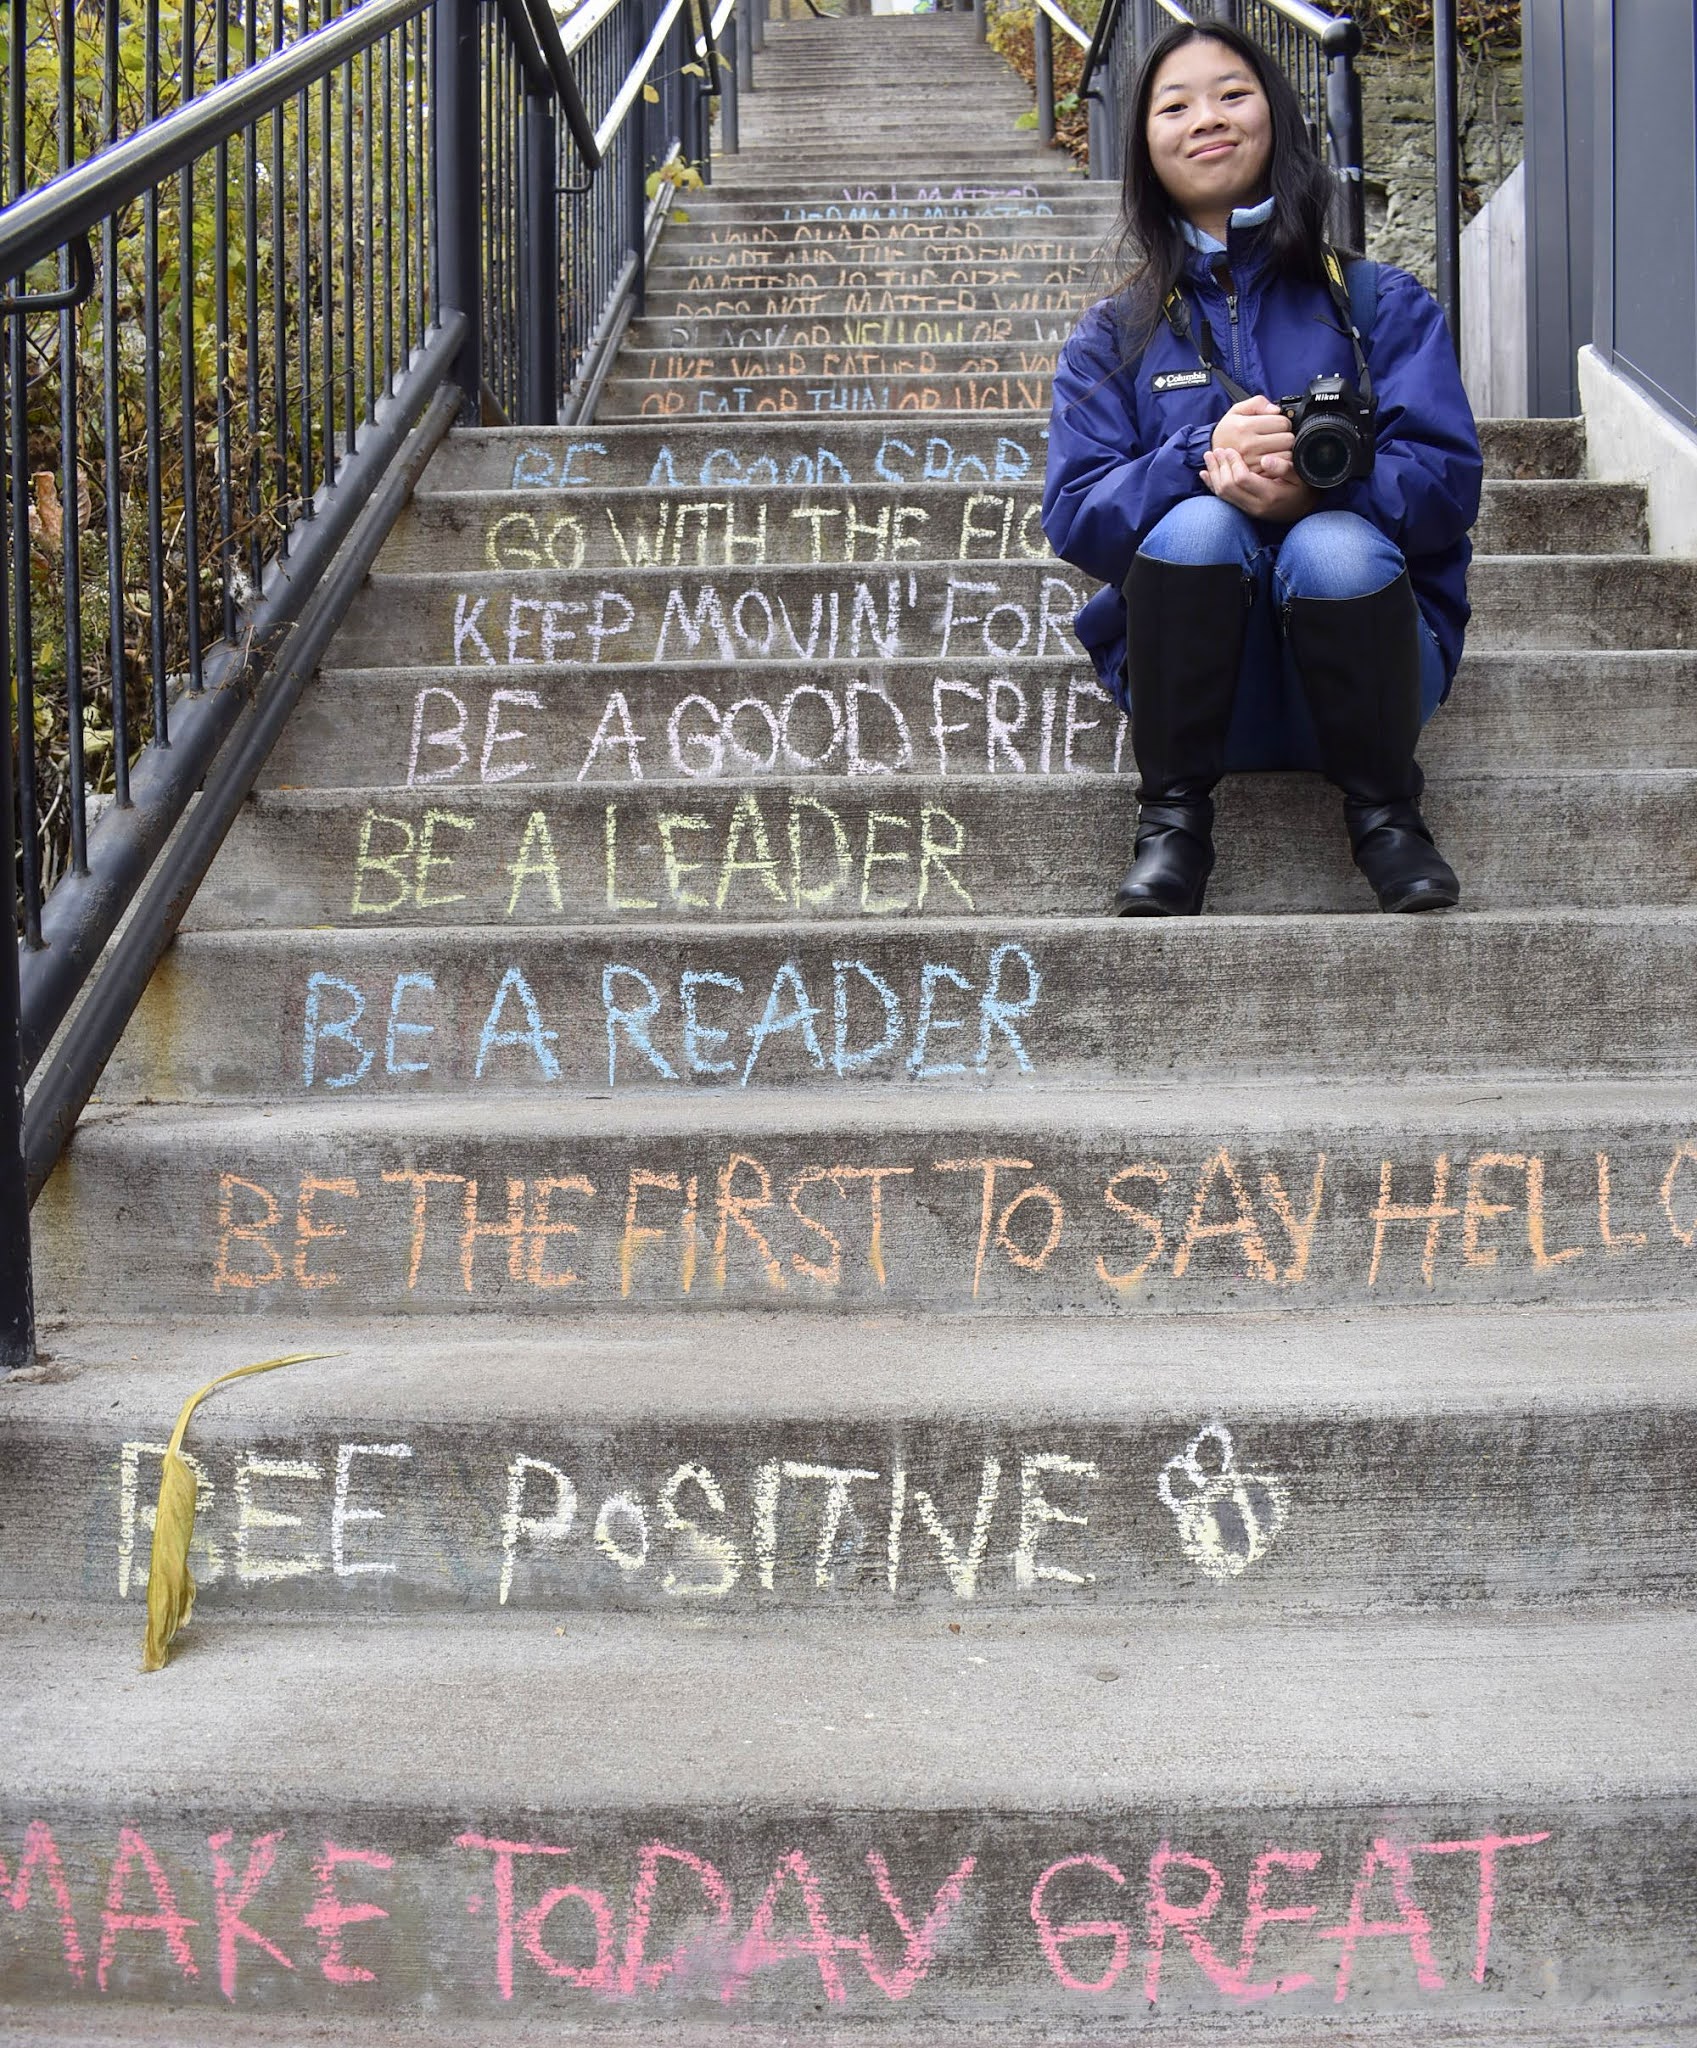 YOU MATTER
HERMAN MUNSTER
YOUR CHARACTER
HEART AND THE STRENGTH
MATTERS IS THE SIZE OF
DOES NOT MATTER WHAT
BLACK OR YELLOW OR
LIKE YOUR FATHER OR YO
OR FAT OR THIN OR UGLY
BE A GOOD SPORT
GO WITH THE FIG
KEEP MOVIN' FOR
BE A GOOD FRIE
BE A LEADER
BE A READER
BE THE FIRST TO SAY HELLO
BEE POSITIVE
MAKE TODAY GREAT
Columbia
Nikon